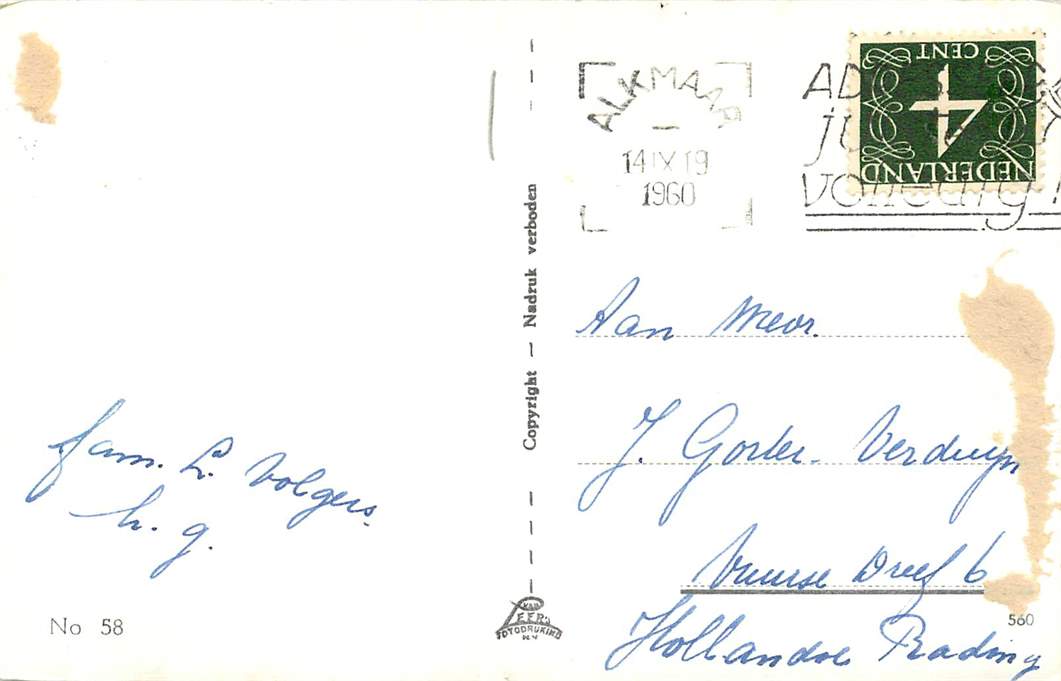 ALKMAAR
14 IX 19
1960
volledig!
CENT
4
NEDERLAND
Aan Mevr.
J. Gorter-Verduyn
Vuurse Dreef 6
Hollandse Rading
fam. L. Volgers.
h. g.
Copyright — Nadruk verboden
VAN
LEER'S
FOTODRUKIND
N.V.
No 58
560